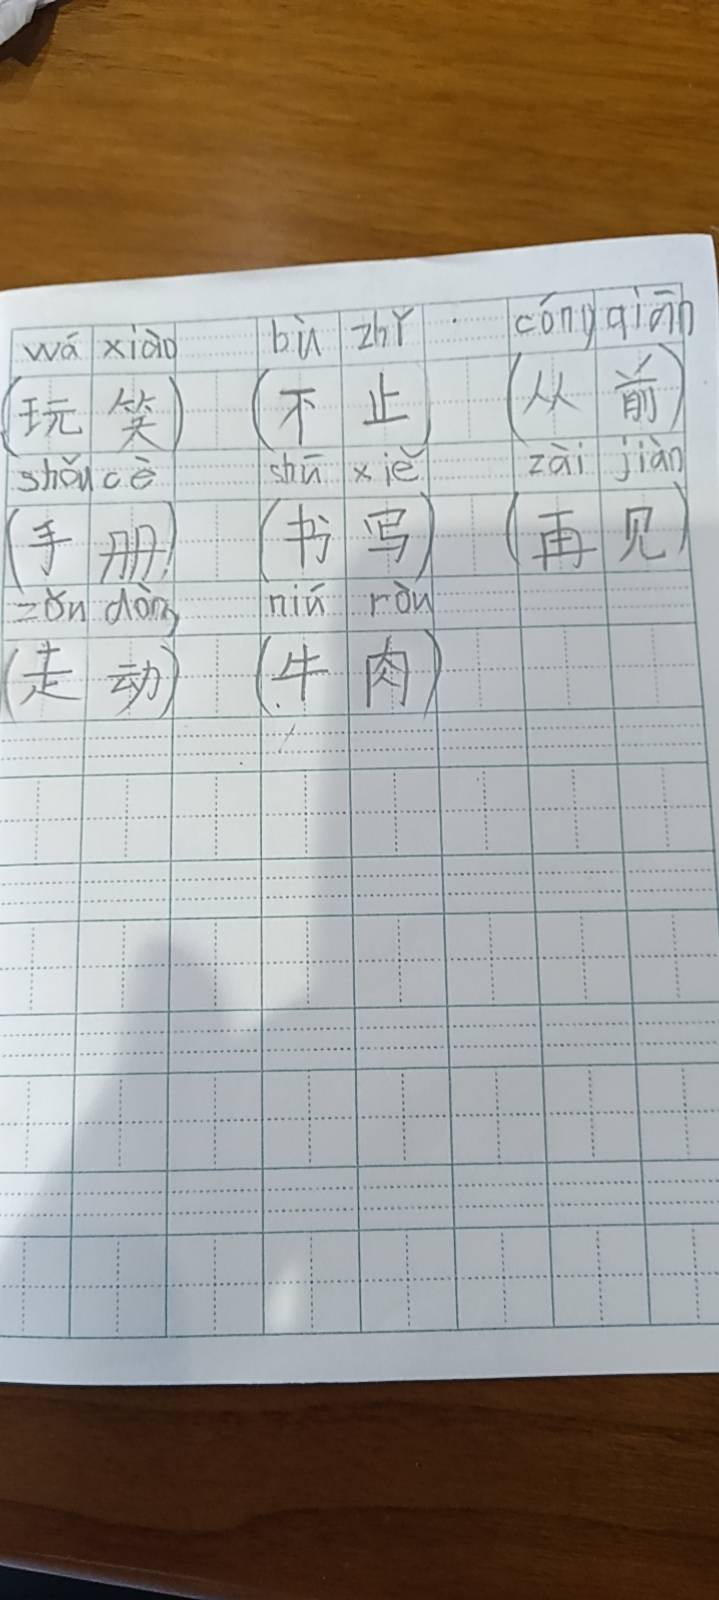 wá xiào bù zhǐ cóng qiān
(玩笑) (不止) (从前)
shǒu cè shū xiě zài jiàn
(手册) (书写) (再见)
zǒn dòng niú ròu
(走动) (牛肉)